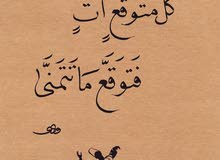 كُلُّ مُتَوَقَّعٍ آتٍ
فَتَوَقَّعْ مَا تَتَمَنَّىٰ